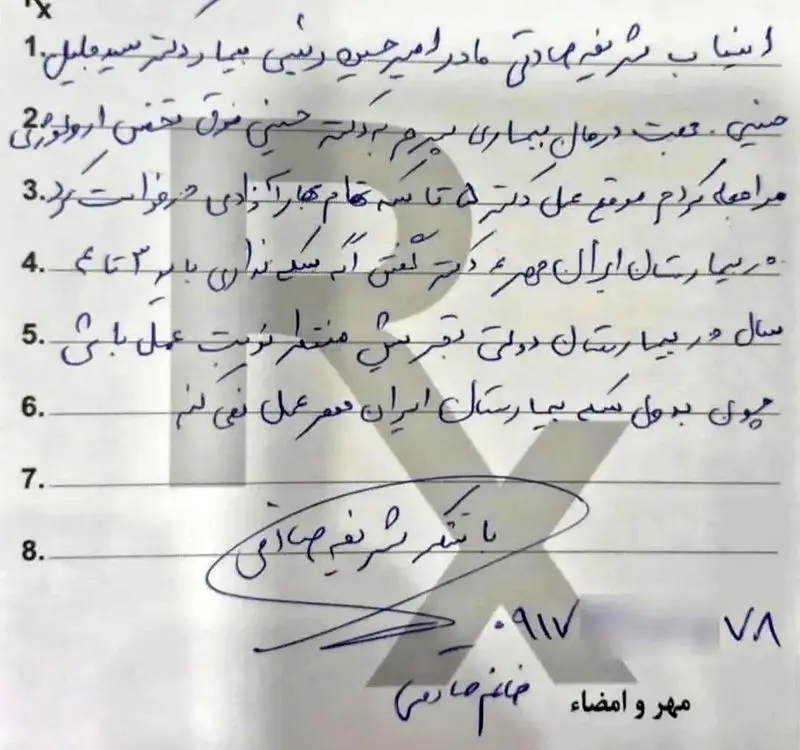 Rx
1. اینجانب شریفه صادقی مادر امیرحسین رئیسی بیمار دکتر سید جلیل
2. حسینی. جهت درمان بیماری پسرم به دکتر حسینی فوق تخصص ارولوژی
3. مراجعه کردم موقع عمل دکتر ۵ تا سکه تمام بهار آزادی درخواست کرد
4. در بیمارستان ایران مهر دکتر گفتن اگه سکه نداری باید ۳ تا ۴
5. سال در بیمارستان دولتی تجریش منتظر نوبت عمل باشی
6. چون بدون سکه بیمارستان ایران مهر عمل نمی کنه
7.
8. با تشکر شریفه صادقی
۰۹۱۷ ۷۸
خانم صادقی
مهر و امضاء